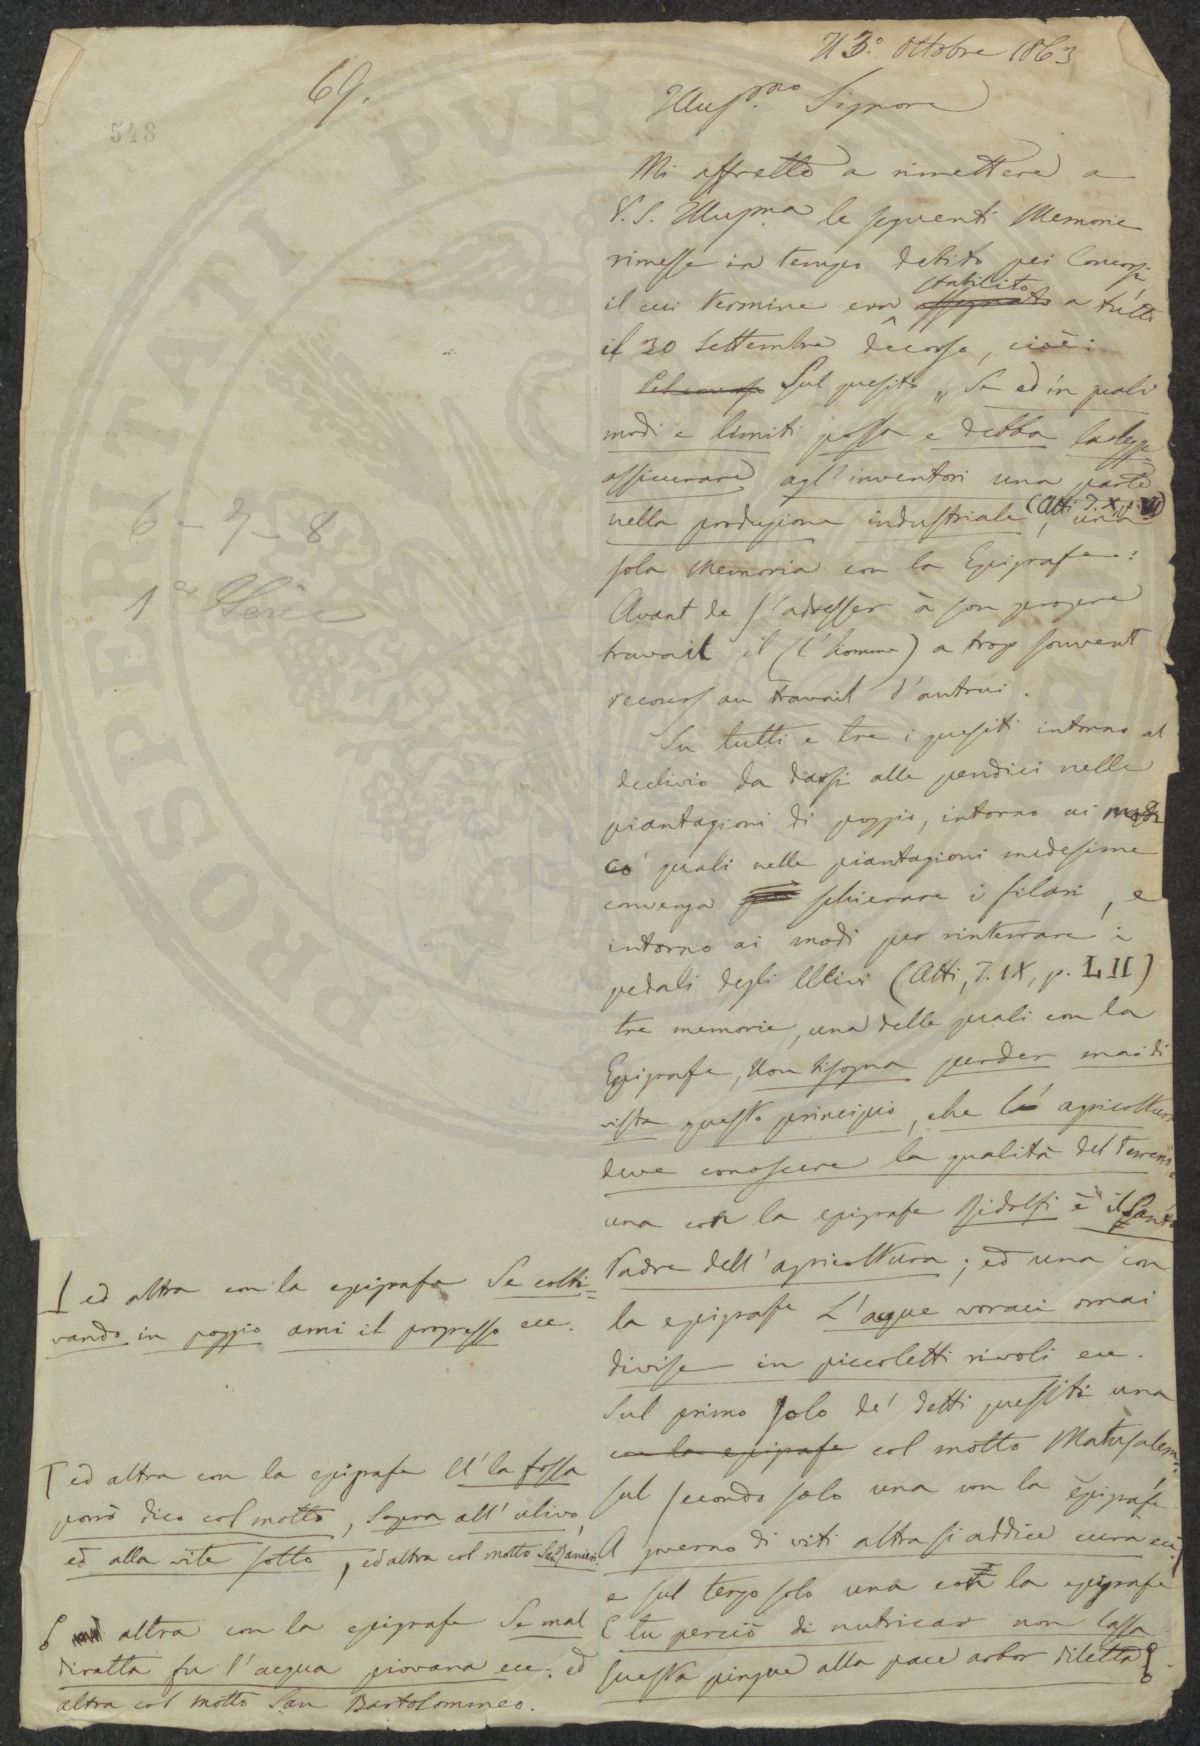 69.
548
Il 3. Ottobre 1863
Illus.mo Signore
Mi affretto a rimettere a
V. S. Illusma le seguenti Memorie
rimesse in tempo debito pei Concorsi
il cui termine era assegnato stabilito a tutto
il 30 Settembre decorso, cioè:
Pel concorso Sul quesito „ Se ed in quali
modi e limiti possa e debba la legge
assicurare agl'inventori una parte
nella produzione industriale (Atti T. X, p. VI), una
sola Memoria con la Epigrafe:
Avant de s'adresser à son propre
travail il (l'homme) a trop souvent
recours au travail d'autrui.
Su tutti e tre i quesiti intorno al
declivio da darsi alle pendici nelle
piantagioni di poggio, intorno ai modi
co' quali nelle piantagioni medesime
convenga schierare i filari, e
intorno ai modi per rinterrare i
pedali degli Ulivi (Atti, T. IX, p. LII)
tre memorie, una delle quali con la
Epigrafe, Non bisogna perder mai di
vista questo principio, che l' agricoltura
deve conoscere la qualità del terreno
una con la epigrafe Ridolfi è il Santo
Padre dell'agricoltura; ed una con
la epigrafe L'acque voraci omai
divise in piccoletti rivoli ecc.
Sul primo solo de' detti quesiti una
con la epigrafe col motto Matusalem
sul secondo solo una con la epigrafe
A governo di viti altra si addice cura ecc.
e sul terzo solo una con la epigrafe
E tu perciò di nutricar non lassa
Questa pingue alla pace arbor diletta
6 - 7 - 8
1a Serie
ed altra con la epigrafe Se colti=
vando in poggio ami il progresso ecc.
ed altra con la epigrafe U' la fossa
porrò dico col motto, Sopra all'ulivo,
ed alla vite sotto, ed altra col motto San Ranieri
altra con la epigrafe Se mal
diratta fu l'acqua piovana ecc. ed
altra col motto San Bartolommeo.
PROSPERITATI PUBLICAE